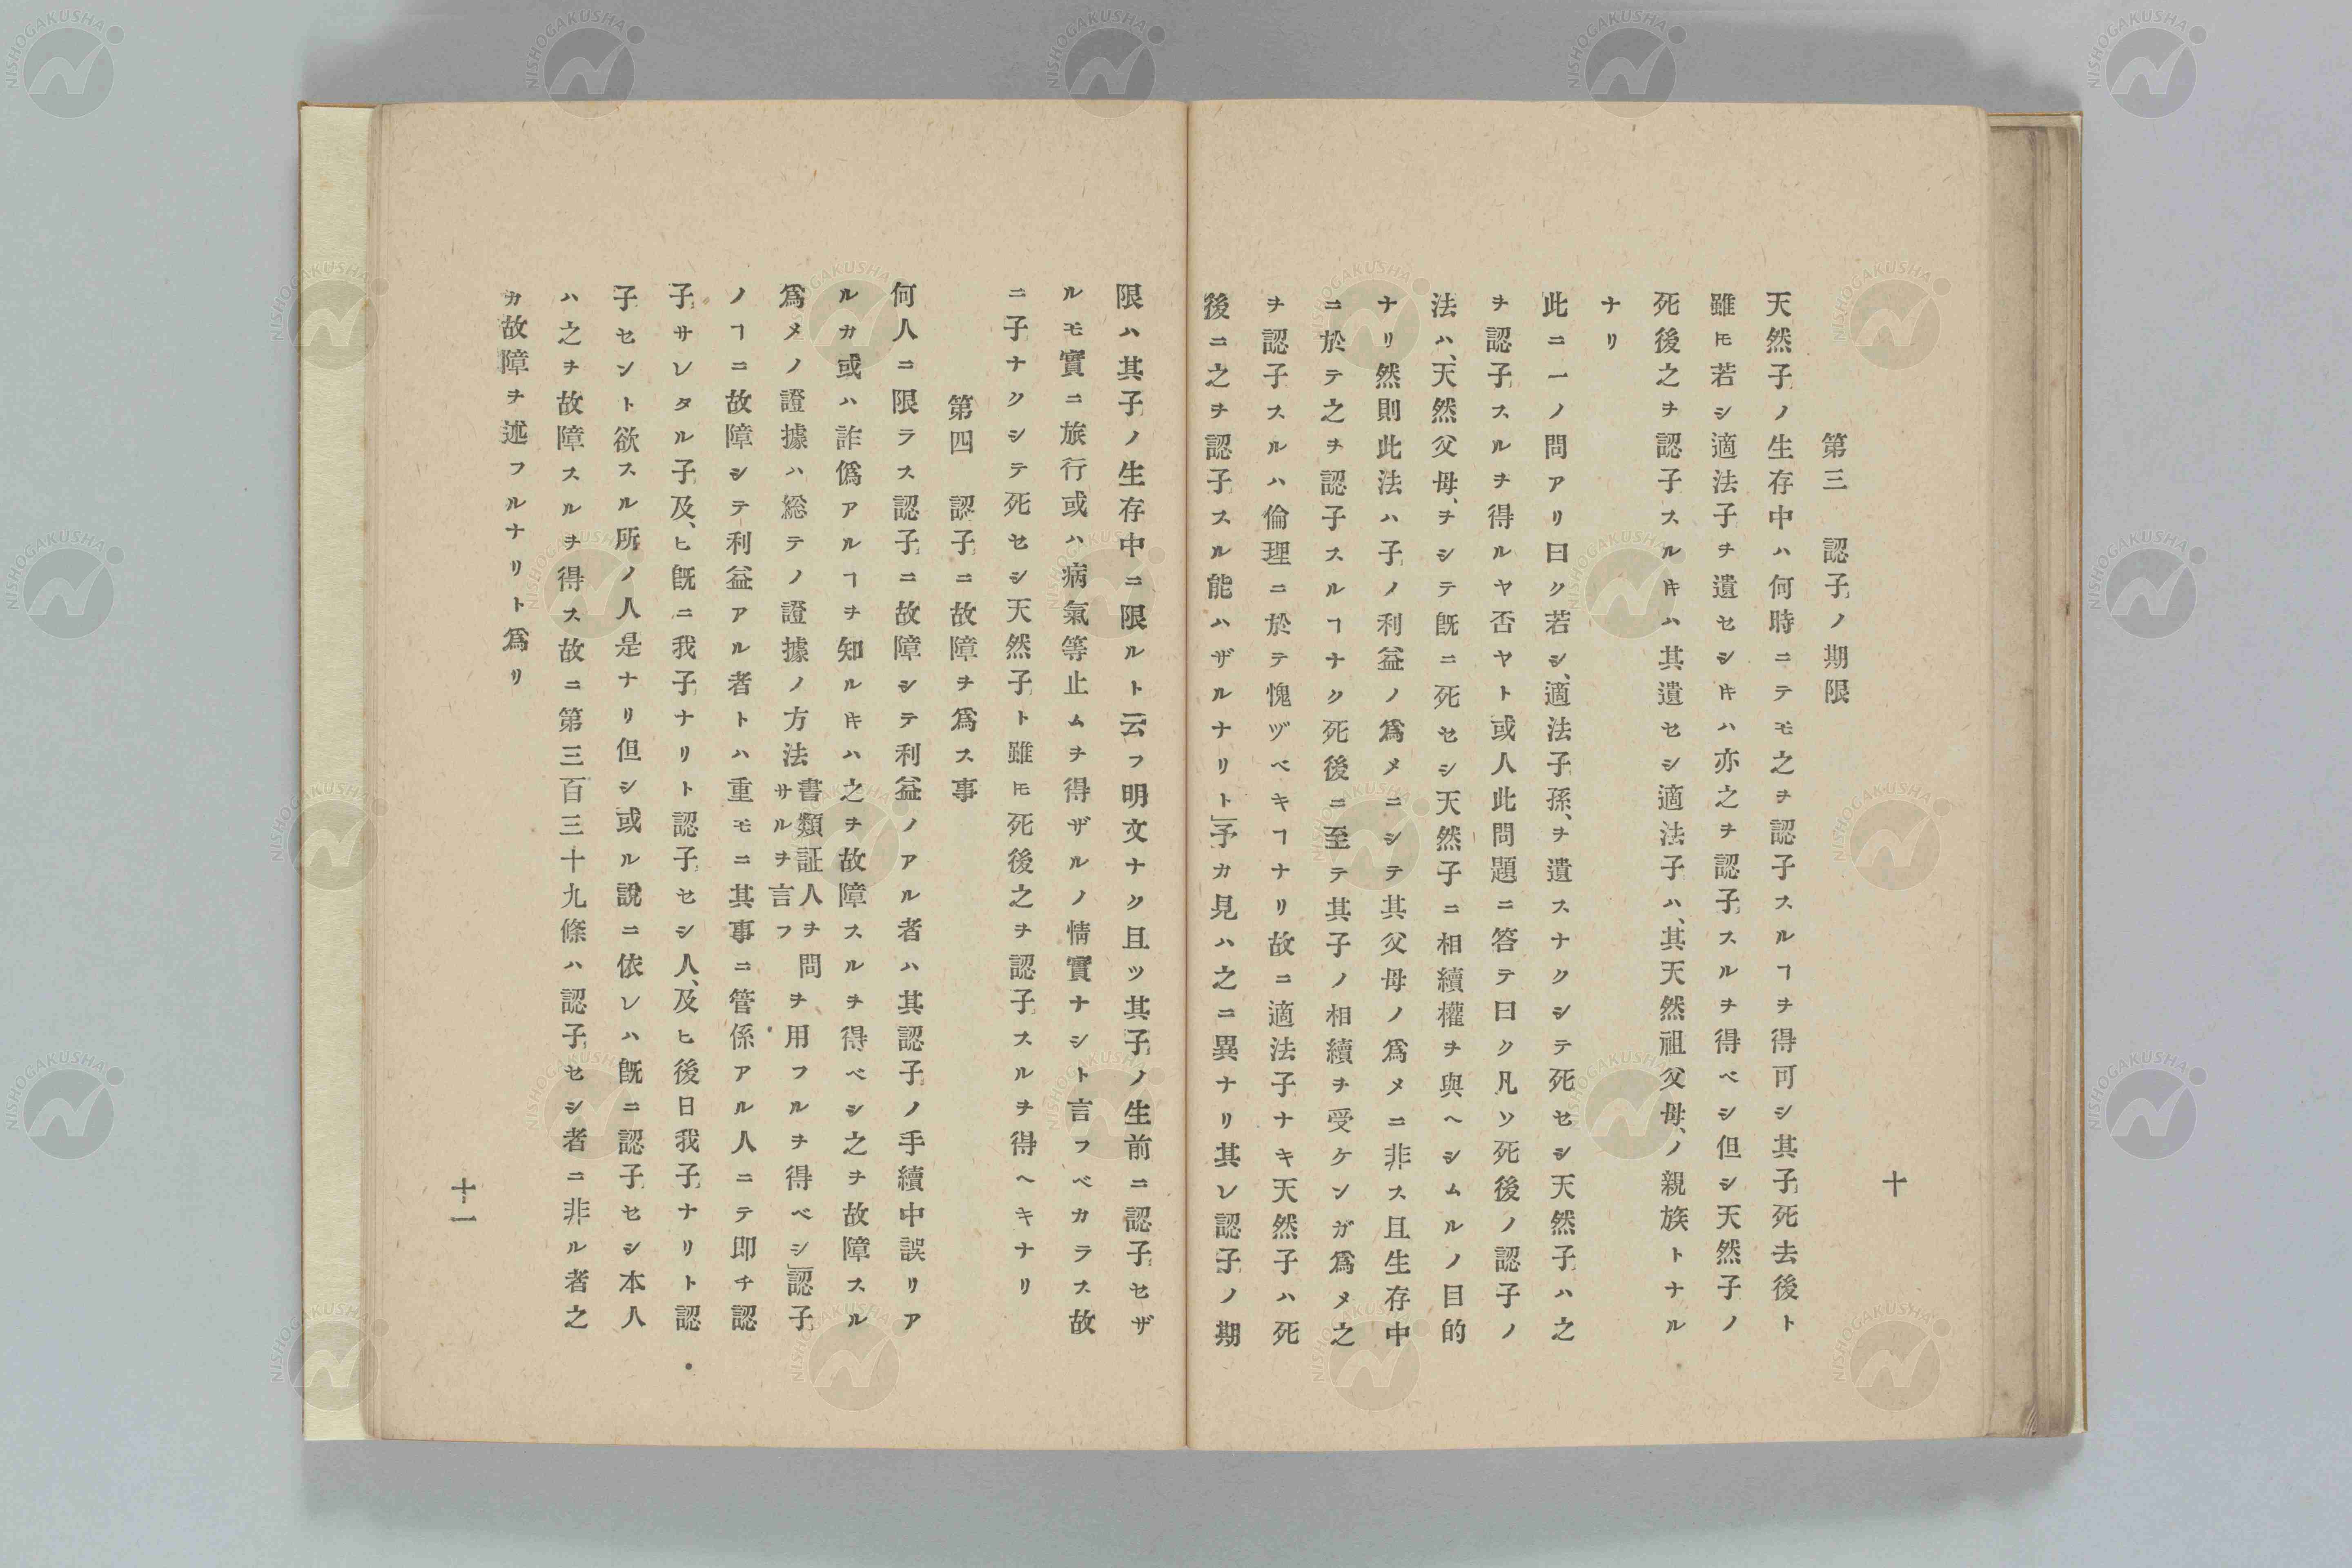 十
第三　認子ノ期限
天然子ノ生存中ハ何時ニテモ之ヲ認子スルヿヲ得可シ其子死去後ト
雖𪜈若シ適法子ヲ遺セシキハ亦之ヲ認子スルヲ得ベシ但シ天然子ノ
死後之ヲ認子スルキハ其遺セシ適法子ハ、其天然祖父母、ノ親族トナル
ナリ
此ニ一ノ問アリ曰ク若シ、適法子孫、ヲ遺スナクシテ死セシ天然子ハ之
ヲ認子スルヲ得ルヤ否ヤト或人此問題ニ答テ曰ク凡ソ死後ノ認子ノ
法ハ、天然父母、ヲシテ既ニ死セシ天然子ニ相續權ヲ與ヘシムルノ目的
ナリ然則此法ハ子ノ利益ノ爲メニシテ其父母ノ爲メニ非ス且生存中
ニ於テ之ヲ認子スルヿナク死後ニ至テ其子ノ相續ヲ受ケンガ爲メ之
ヲ認子スルハ倫理ニ於テ愧ヅベキヿナリ故ニ適法子ナキ天然子ハ死
後ニ之ヲ認子スル能ハザルナリト」予カ見ハ之ニ異ナリ其レ認子ノ期
限ハ其子ノ生存中ニ限ルト云フ明文ナク且ツ其子ノ生前ニ認子セザ
ルモ實ニ旅行或ハ病氣等止ムヲ得ザルノ情實ナシト言フベカラス故
ニ子ナクシテ死セシ天然子ト雖𪜈死後之ヲ認子スルヲ得ヘキナリ
第四　認子ニ故障ヲ爲ス事
何人ニ限ラス認子ニ故障シテ利益ノアル者ハ其認子ノ手續中誤リア
ルカ或ハ詐僞アルヿヲ知ルキハ之ヲ故障スルヲ得ベシ之ヲ故障スル
爲メノ證據ハ総テノ證據ノ方法書類証人ヲ問サルヲ言フヲ用フルヲ得ベシ」認子
ノヿニ故障シテ利益アル者トハ重モニ其事ニ管係アル人ニテ即チ認
子サレタル子及、ヒ既ニ我子ナリト認子セシ人、及ヒ後日我子ナリト認
子セント欲スル所ノ人是ナリ但シ或ル說ニ依レハ既ニ認子セシ本人
ハ之ヲ故障スルヲ得ス故ニ第三百三十九條ハ認子セシ者ニ非ル者之
カ故障ヲ述フルナリト爲リ
十一